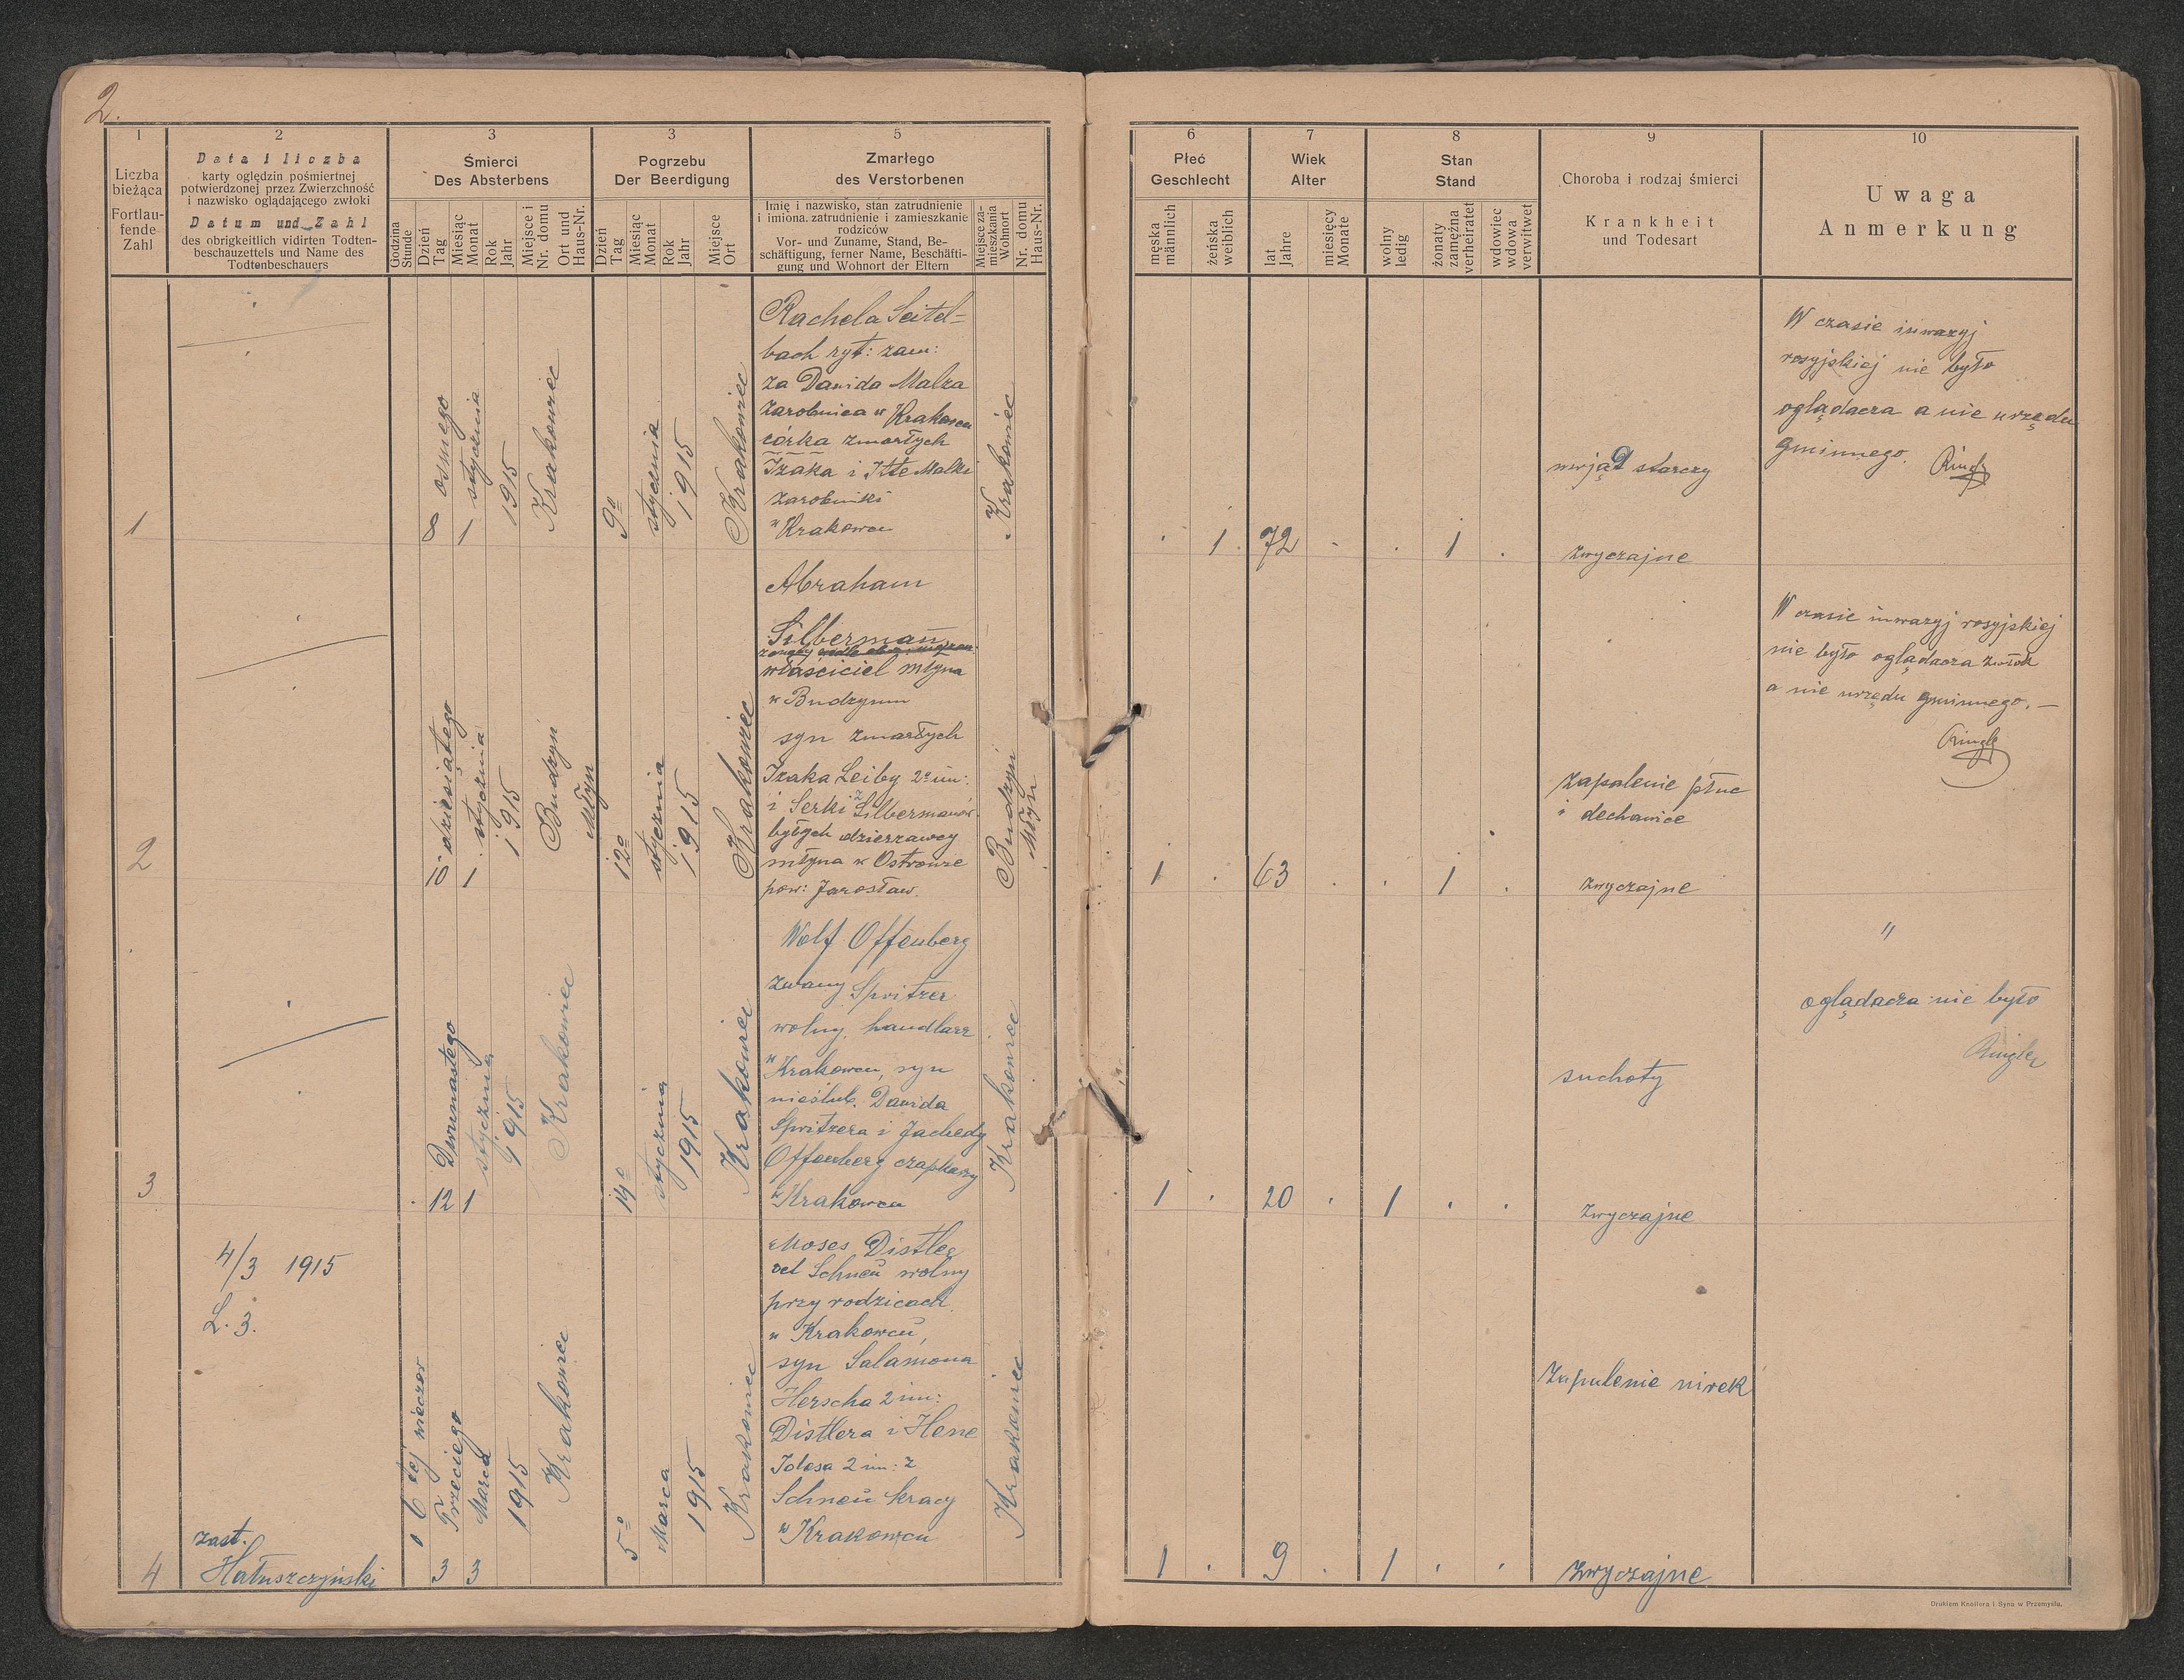 2.
1
2
3
3
5
6
7
8
9
10
Liczba
bieżąca
Fortlau-
fende
Zahl
Data i liczba
karty oględzin pośmiertnej
potwierdzonej przez Zwierzchność
i nazwisko oglądającego zwłoki
Datum und Zahl
des obrigkeitlich vidirten Todten-
beschauzettels und Name des
Todtenbeschauers
Śmierci
Des Absterbens
Godzina
Stunde
Dzień
Tag
Miesiąc
Monat
Rok
Jahr
Miejsce i
Nr. domu
Ort und
Haus-Nr.
Pogrzebu
Der Beerdigung
Dzień
Tag
Miesiąc
Monat
Rok
Jahr
Miejsce
Ort
Zmarłego
des Verstorbenen
Imię i nazwisko, stan zatrudnienie
i imiona. zatrudnienie i zamieszkanie
rodziców
Vor- und Zuname, Stand, Be-
schäftigung, ferner Name, Beschäfti-
gung und Wohnort der Eltern
Miejsce za-
mieszkania
Wohnort
Nr. domu
Haus-Nr.
Płeć
Geschlecht
męska
männlich
żeńska
weiblich
Wiek
Alter
lat
Jahre
miesięcy
Monate
Stan
Stand
wolny
ledig
żonaty
zamężna
verheiratet
wdowiec
wdowa
verwitwet
Choroba i rodzaj śmierci
Krankheit
und Todesart
Uwaga
Anmerkung
1
8 ósmego
1 stycznia
1915
Krakowiec
9º
stycznia
1915
Krakowiec
Rachela Seitel-
bach ryt: zam:
za Dawida Malza
zarobnica w Krakowcu
córka zmarłych
Izaka i Itte Malki
zarobniki
w Krakowcu
Krakowiec
1
72
1
uwiąd starczy
zwyczajne
W czasie inwazyj
rosyjskiej nie było
oglądacza a nie urzędu
gminnego.
2
10 dziesiątego
1 stycznia
1915
Budzyń
Młyn
12º
stycznia
1915
Krakowiec
Abraham
Silberman
właściciel młyna
w Budzyniu
syn zmarłych
Izaka Leiby 2º im:
i Serki z Silbermanów
byłych dzierzawcy
młyna w Ostrowie
pow: Jarosław.
Budzyń
Młyn
1
63
1
zapalenie płuc
i dechawice
zwyczajne
W czasie inwazyj rosyjskiej
nie było oglądacza zwłok
a nie urzędu gminnego. —
3
12 Dwunastego
1 stycznia
1915
Krakowiec
14º
stycznia
1915
Krakowiec
Wolf Offenberg
zwany Spritzer
wolny, handlarz
w Krakowcu, syn
nieślub. Dawida
Spritzera i Jachedy
Offenberg czapkarzy
w Krakowcu
Krakowiec
1
20
1
suchoty
zwyczajne
"
oglądacza nie było
4
4/3 1915
L. 3.
zast.
Hałuszczyński
6 tej wieczór
3 Trzeciego
3 Marca
1915
Krakowiec
5º
Marca
1915
Krakowiec
Moses Distler
vel Schneü wolny
przy rodzicach
w Krakowcu,
syn Salamona
Herscha 2 im:
Distlera i Hene
2 im: z
Schneü kracy
w Krakowcu
Krakowiec
1
9
1
Zapalenie nirek
zwyczajne
Drukiem Knollera i Syna w Przemyślu.